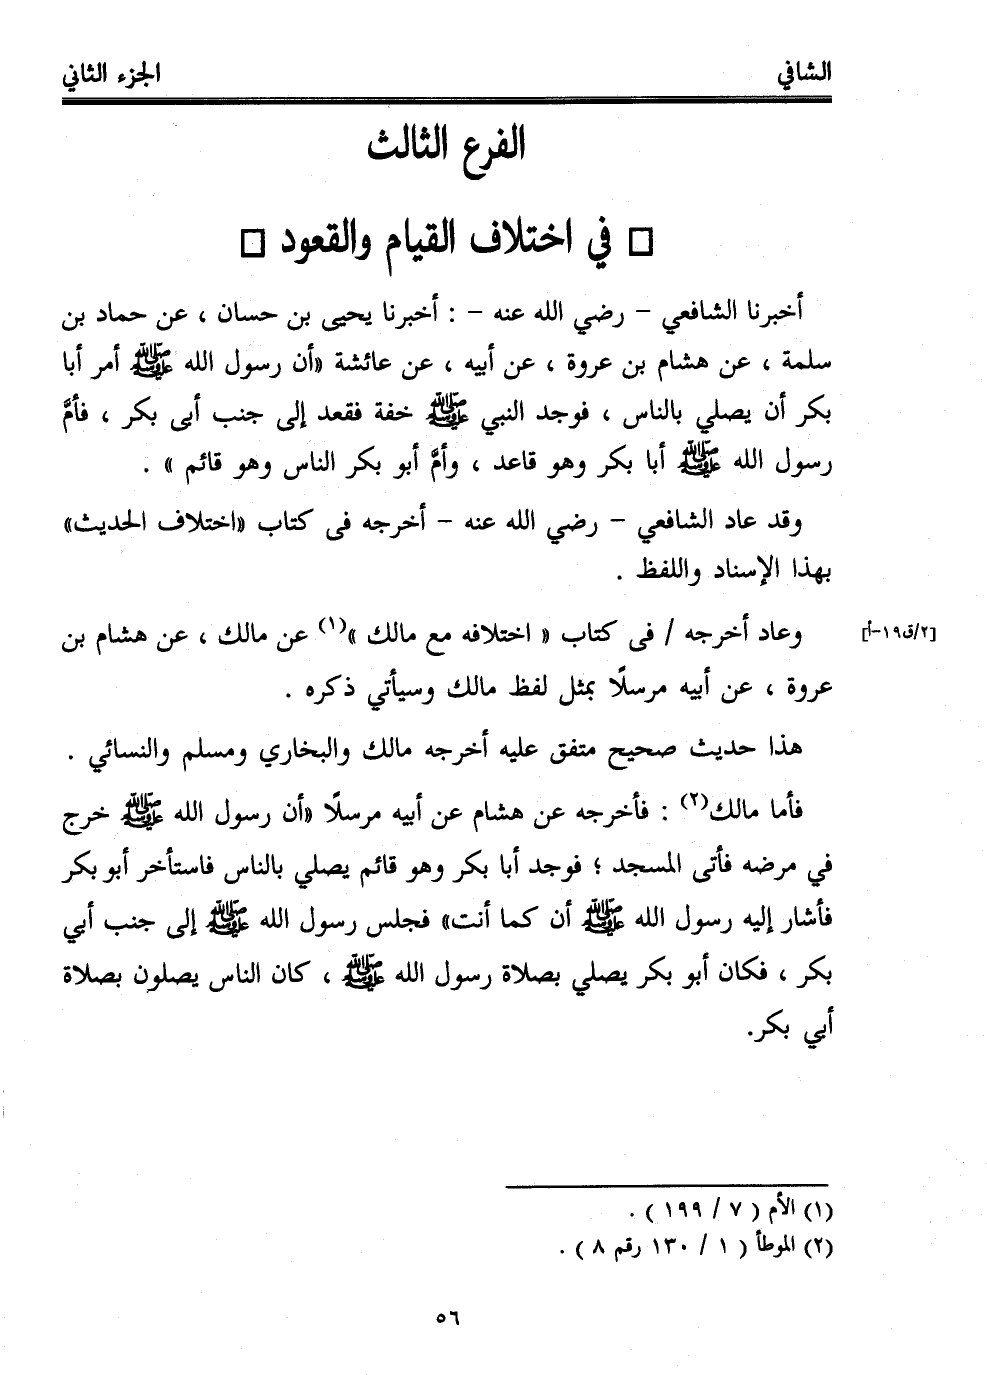 الشافي الجزء الثاني
الفرع الثالث
□ في اختلاف القيام والقعود □
أخبرنا الشافعي - رضي الله عنه - : أخبرنا يحيى بن حسان ، عن حماد بن
سلمة ، عن هشام بن عروة ، عن أبيه ، عن عائشة «أن رسول الله ﷺ أمر أبا
بكر أن يصلي بالناس ، فوجد النبي ﷺ خفة فقعد إلى جنب أبى بكر ، فأمَّ
رسول الله ﷺ أبا بكر وهو قاعد ، وأمَّ أبو بكر الناس وهو قائم » .
وقد عاد الشافعي - رضي الله عنه - أخرجه فى كتاب «اختلاف الحديث»
بهذا الإسناد واللفظ .
وعاد أخرجه / فى كتاب « اختلافه مع مالك »(١) عن مالك ، عن هشام بن [٢/ق١٩-أ]
عروة ، عن أبيه مرسلًا بمثل لفظ مالك وسيأتي ذكره .
هذا حديث صحيح متفق عليه أخرجه مالك والبخاري ومسلم والنسائي .
فأما مالك(٢) : فأخرجه عن هشام عن أبيه مرسلًا «أن رسول الله ﷺ خرج
في مرضه فأتى المسجد ؛ فوجد أبا بكر وهو قائم يصلي بالناس فاستأخر أبو بكر
فأشار إليه رسول الله ﷺ أن كما أنت» فجلس رسول الله ﷺ إلى جنب أبي
بكر ، فكان أبو بكر يصلي بصلاة رسول الله ﷺ ، كان الناس يصلون بصلاة
أبي بكر.
(١) الأم ( ٧ / ١٩٩ ) .
(٢) الموطأ ( ١ / ١٣٠ رقم ٨ ) .
٥٦